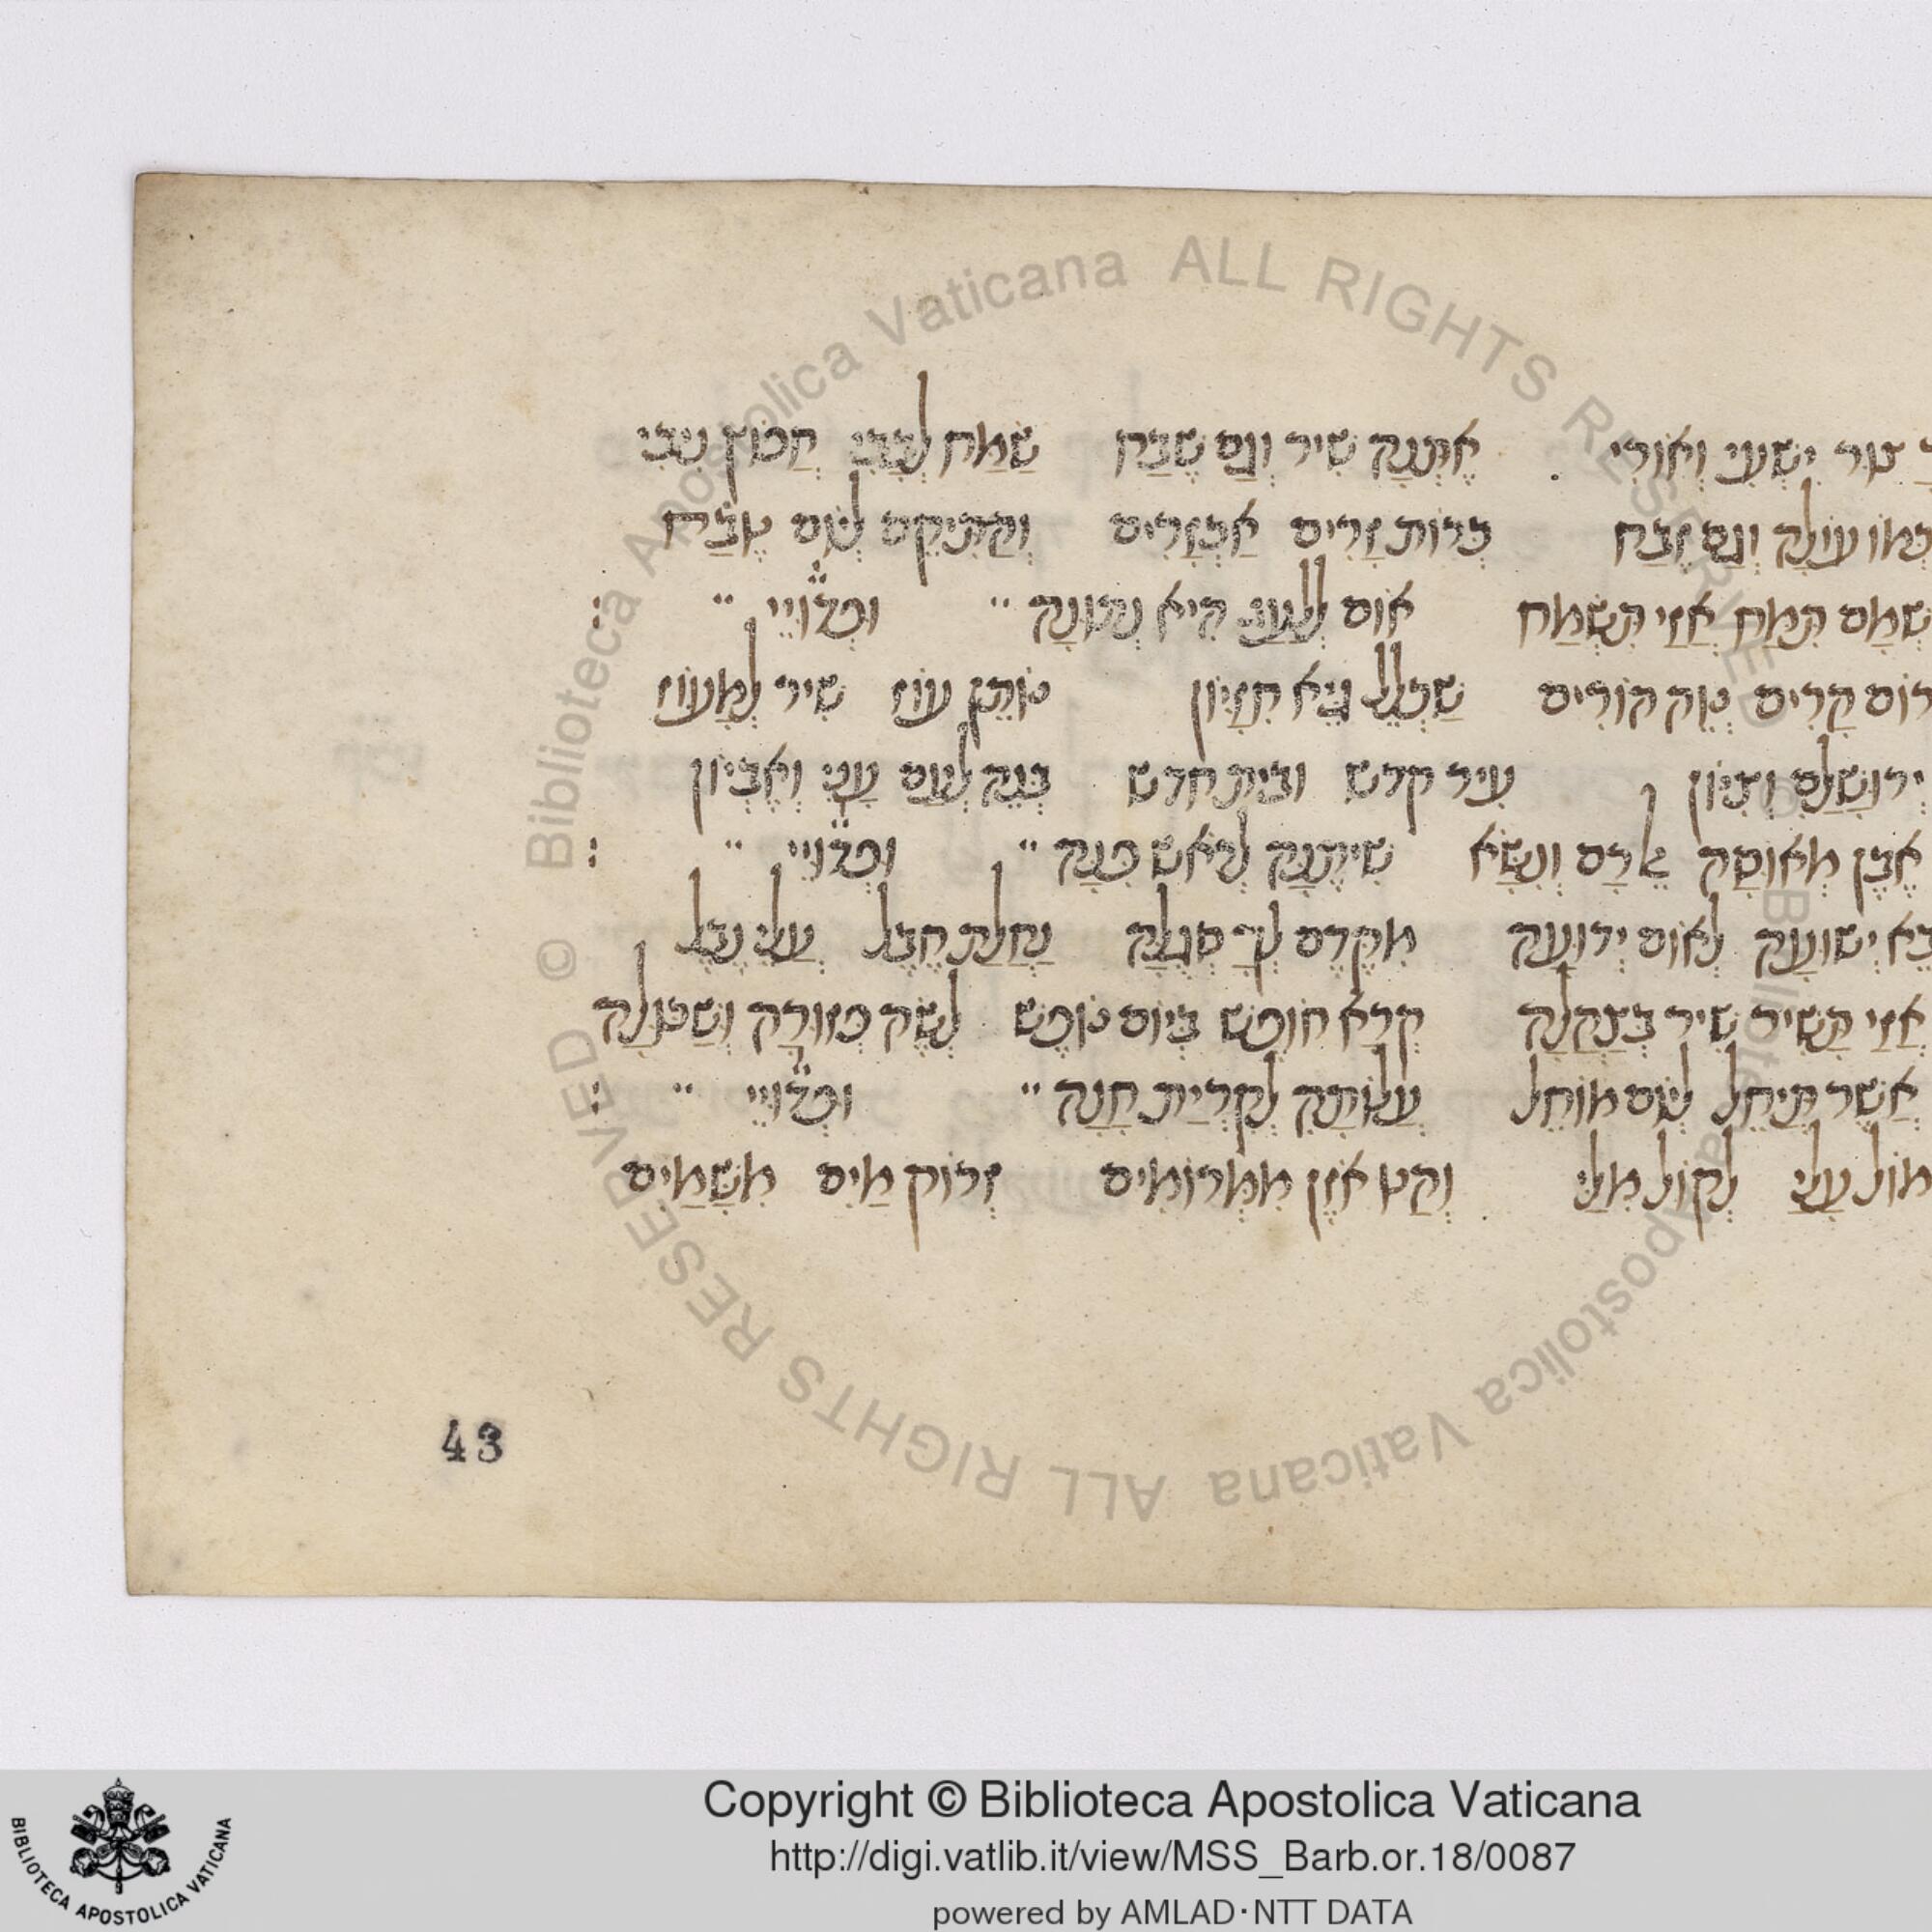 צור יִשְׁעִי וְאוֹרִי . אֶתְּנָה שִׁיר וְגַם שֶׁבַח שַׂמַּח לְצָבִי חֲטוֹף נִיבִי
כְּמוֹ עוֹלָה וְגַם זֶבַח כְּרוֹת זָרִים אַכְזָרִים וְהָתִיקֵם לְשֵׂם טֶבַח
אֲזַי תִּשְׂמַח אוֹם הִיא " וְכֻלוֹיי " :
רוֹם הָרִים הוֹרִים שַׁכְלֵל גֵּיא חִזָּיוֹן נוֹתֵן עוֹז שִׁיר לְמָעוֹז
יְרוּשָׁלַם וְצִיּוֹן עִיר קדש ובית חדש בְּנֵה לְעַם עָנִי וְאֶבְיוֹן
אֶבֶן מְאוּסָה רָם וְנִשָּׂא שִׁיתֶנָּה לְרֹאשׁ פִּנָּה " וְכֻלוֹיי " :
יְשׁוּעָה לְאוֹם יְדוּעָה מִקֶּדֶם לְךָ סְגֻלָּה נַחֲלַת חֶבֶל עֲלֵי נֶבֶל
אֲזַי תָּשִׁיר שִׁיר בְּצָהֳלָה קְרָא חוֹפֶשׁ בְּיוֹם נוֹפֶשׁ לְשֶׂה פְזוּרָה וְשַׁכּוּלָה
אֲשֶׁר תְּיַחֵל לְשֵׁם מוֹחֵל עֲלוֹתָהּ לְקִרְיַת חָנָה " וְכֻלוֹיי " :
מוֹל עָלַי לְקוֹל מִלַּי . וְהַט אֹזֶן מִמְּרוֹמִים זְרוֹק מַיִם מִשָּׁמַיִם
43
© Biblioteca Apostolica Vaticana ALL RIGHTS RESERVED
© Biblioteca Apostolica Vaticana ALL RIGHTS RESERVED
BIBLIOTECA APOSTOLICA VATICANA
Copyright © Biblioteca Apostolica Vaticana
http://digi.vatlib.it/view/MSS_Barb.or.18/0087
powered by AMLAD·NTT DATA